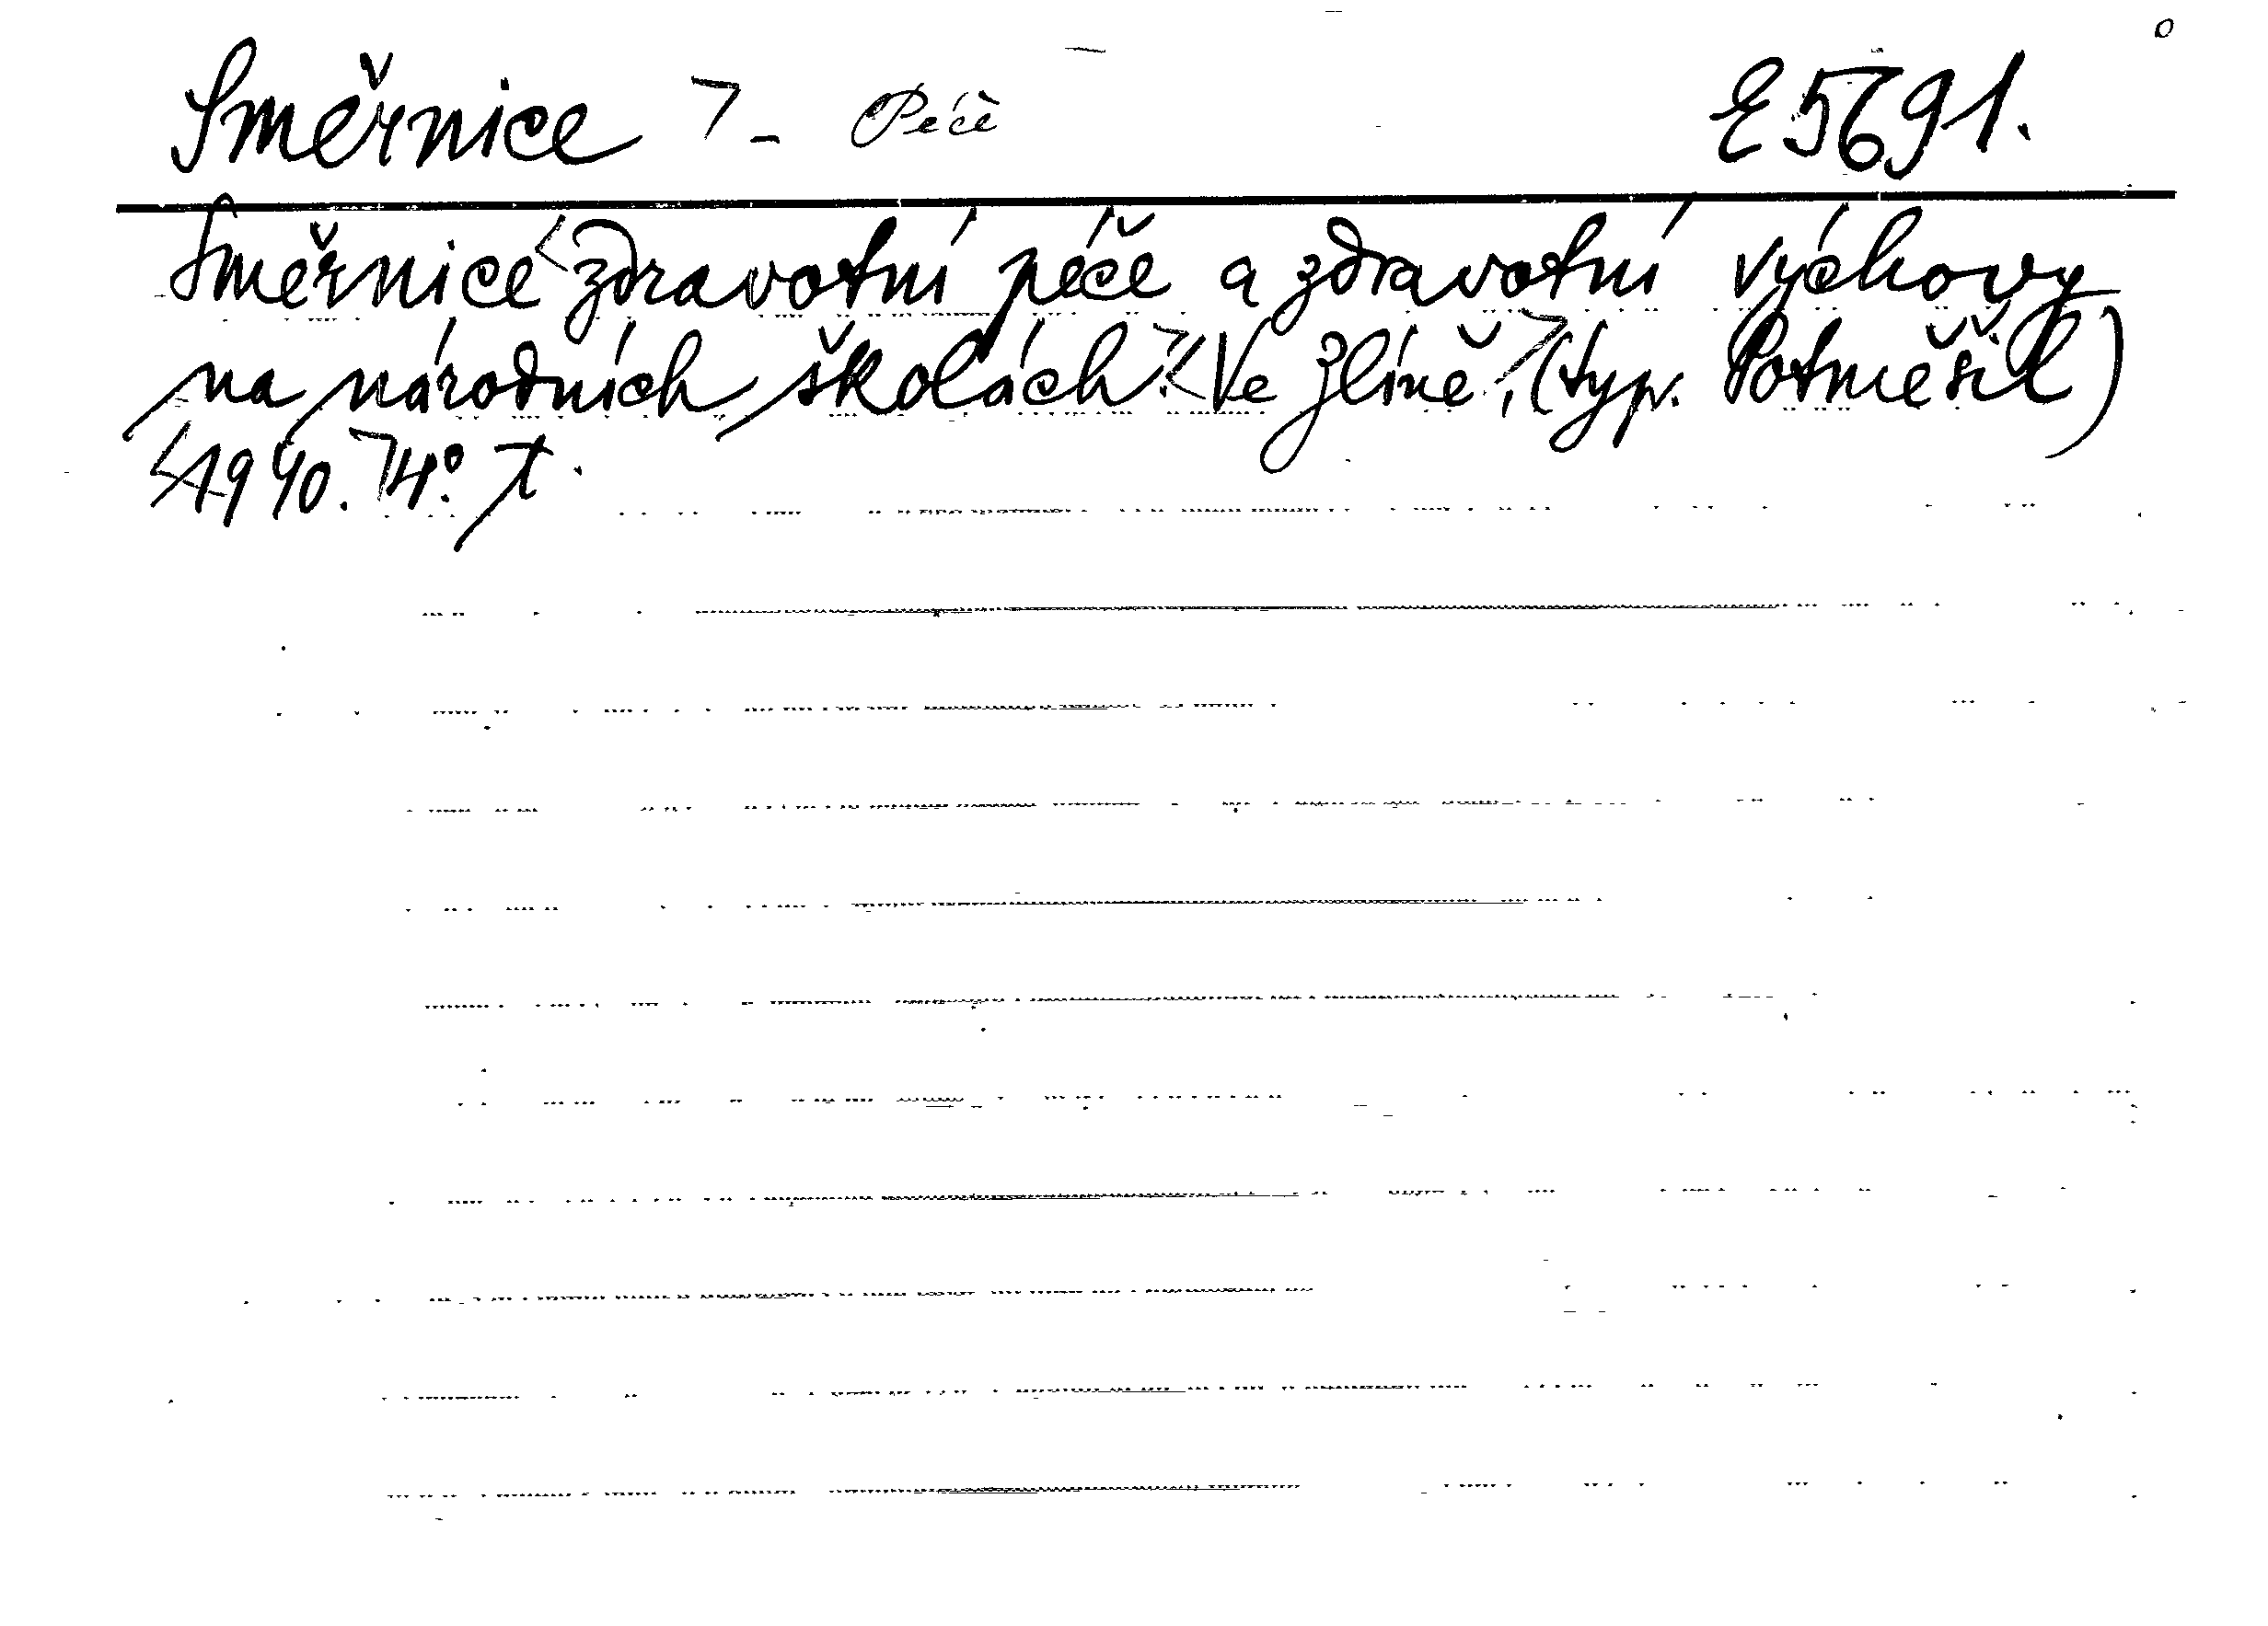 Směrnice ⁊ - Péče E 5691.
Směrnice <zdravotní péče a zdravotní výchovy
na národních školách.> <Ve Zlíně,> (typ. Potměšil)
<1940.> 4°. t.